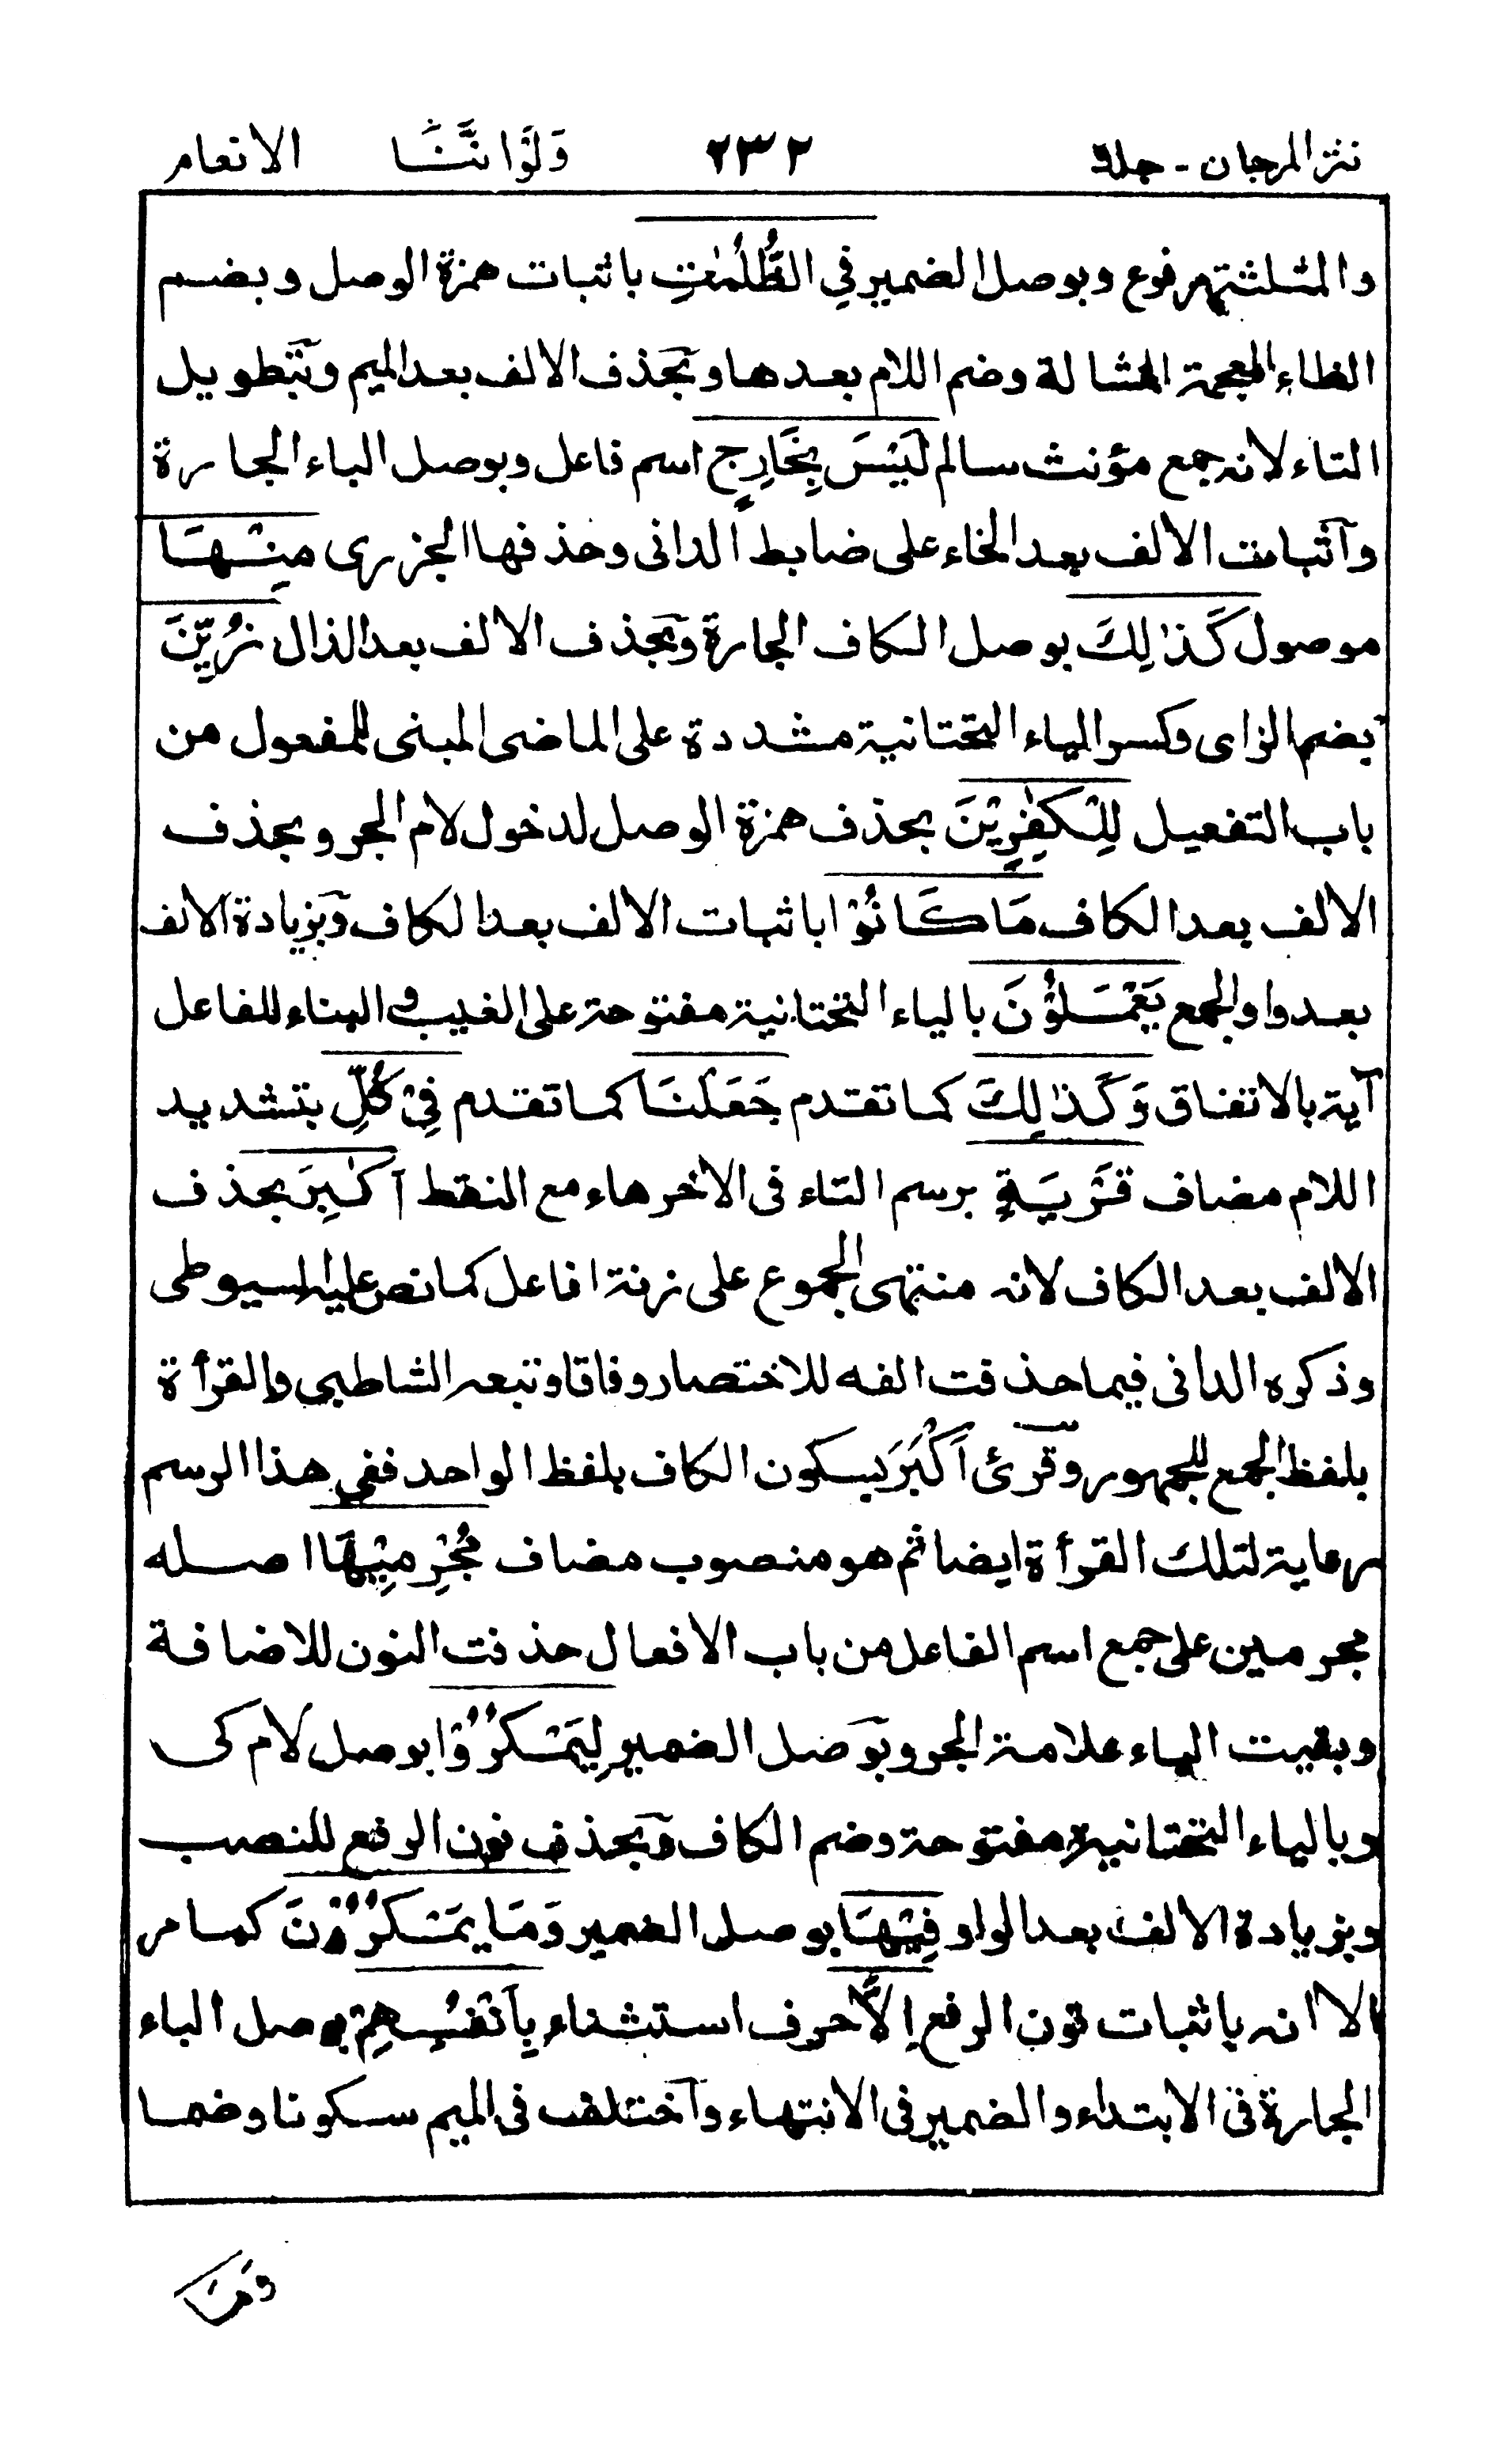 نثر المرجان - جلد٢ ٢٣٢ وَلَوْ اَنَّنَا الانعام
والمثلثة مرفوع وبوصل الضمير فِي الظُّلُمٰتِ باثبات همزة الوصل وبضم
الظاء المعجمة المشالة وضم اللام بعدها وبحذف الالف بعد الميم وبتطويل
التاء لانه جمع مؤنث سالم لَيْسَ بِخَارِجٍ اسم فاعل وبوصل الباء الجارة
واثبات الالف بعد الخاء على ضابط الدانى وحذفها الجزرى مِنْهَا
موصول كَذٰلِكَ بوصل الكاف الجارة وبحذف الالف بعد الذال زُيِّنَ
بضم الزاى وكسر الياء التحتانية مشددة على الماضى المبنى للمفعول من
باب التفعيل لِلْكٰفِرِيْنَ بحذف همزة الوصل لدخول لام الجر وبحذف
الالف بعد الكاف مَا كَانُوْا باثبات الالف بعد الكاف وبزيادة الالف
بعد واو الجمع يَعْمَلُوْنَ بالياء التحتانية مفتوحة على الغيب والبناء للفاعل
آية بالاتفاق وَكَذٰلِكَ كما تقدم جَعَلْنَا كما تقدم فِيْ كُلِّ بتشديد
اللام مضاف قَرْيَةٍ برسم التاء فى الاخر هاء مع النقط اَكٰبِرَ بحذف
الالف بعد الكاف لانه منتهى الجموع على زنة افاعل كما نص عليه السيوطى
وذكره الدانى فيما حذفت الفه للاختصار وفاقا وتبعه الشاطبي والقرأة
بلفظ الجمع للجمهور وقرئ اَكْبَرَ بسكون الكاف بلفظ الواحد ففي هذا الرسم
رعاية لتلك القرأة ايضا ثم هو منصوب مضاف مُجْرِمِيْهَا اصله
مجرمين على جمع اسم الفاعل من باب الافعال حذفت النون للاضافة
وبقيت الياء علامة الجر وبوصل الضمير لِيَمْكُرُوْا بوصل لام كى
وبالياء التحتانية مفتوحة وضم الكاف وبحذف نون الرفع للنصب
وبزيادة الالف بعد الواو فِيْهَا بوصل الضمير وَمَا يَمْكُرُوْنَ كما مر
الا انه باثبات نون الرفع اِلَّا حرف استثناء بِاَنْفُسِهِمْ بوصل الباء
الجارة فى الابتداء والضمير فى الانتهاء واختلف فى الميم سكونا وضما
وَمَا